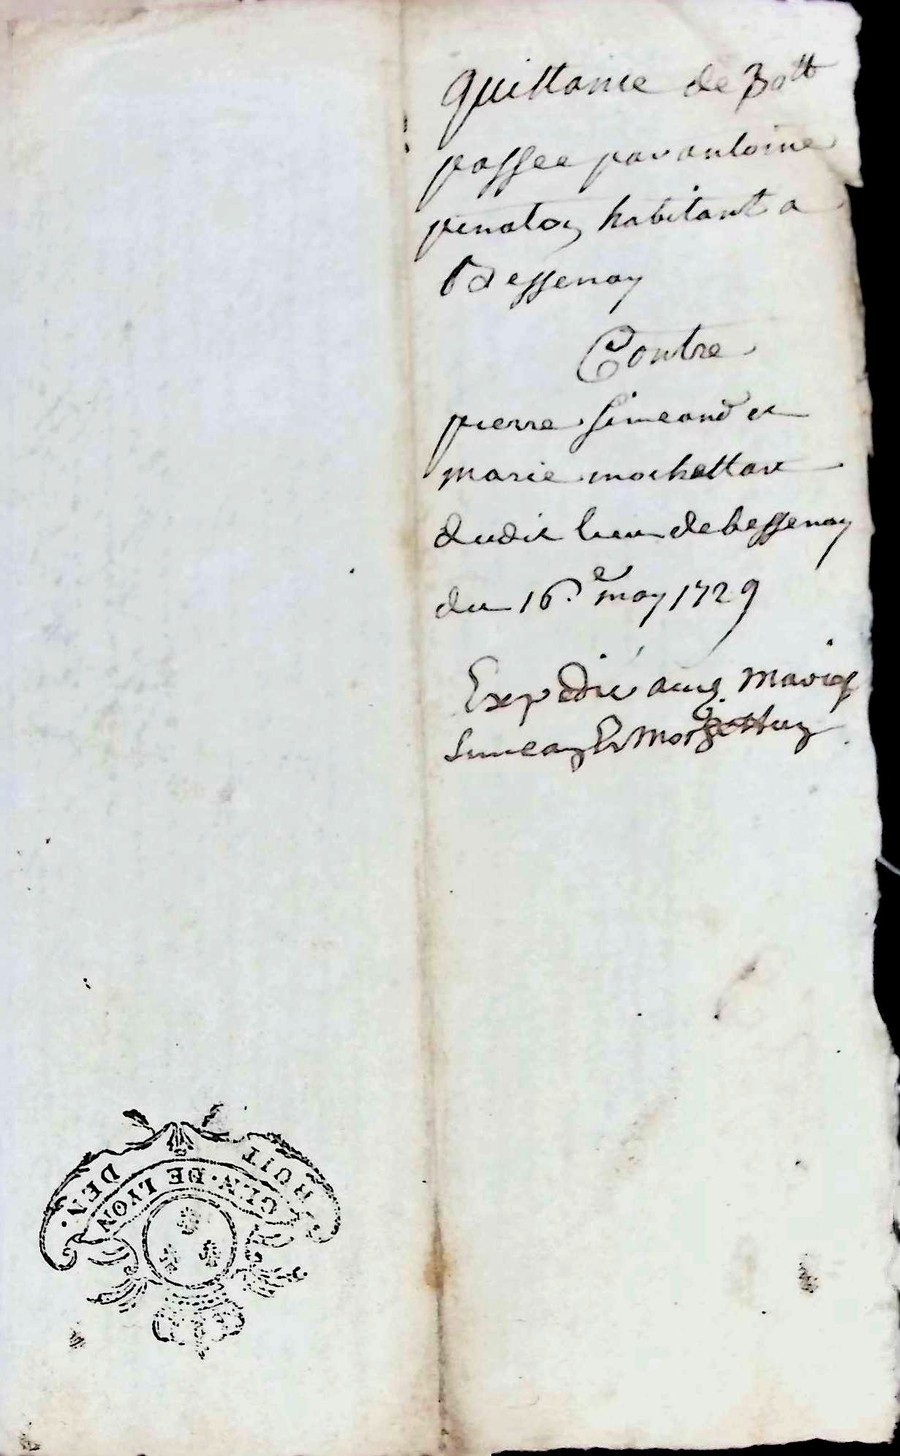 quittance de 30tt
passee par antoine
pinaton habitant a
Bessenay
Contre
pierre Simeand et
marie mochettan
dudit lieu debessenay
du 16.e may 1729
Expedié aux mariés
Simean Et
HUIT DEN.
GEN. DE LYON